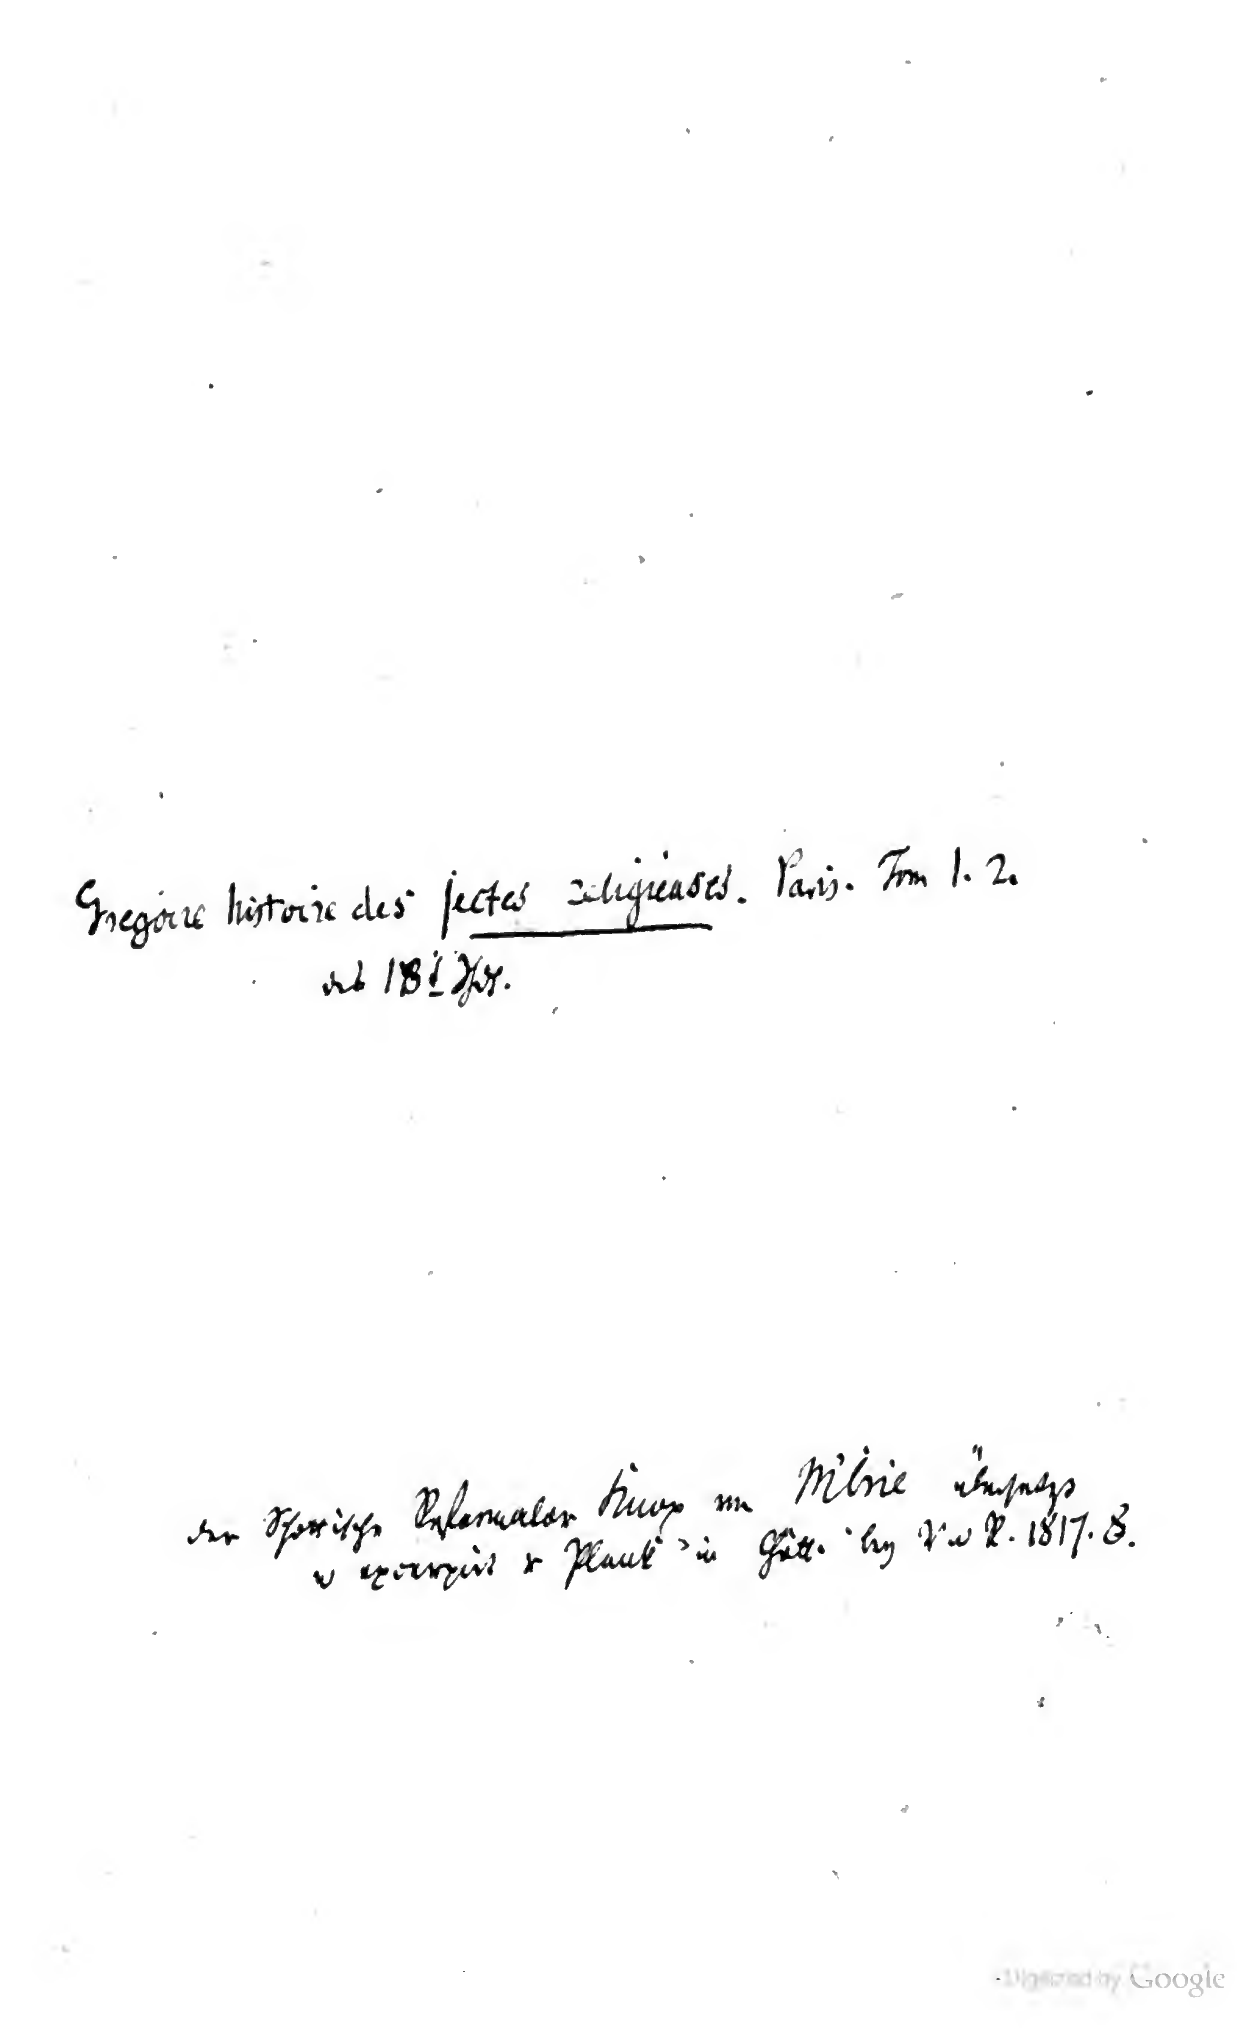 Gregoire histoire des sectes religieuses. Paris. Tom 1. 2.
des 18t Jhr.
der Schottische Reformator Knox von M'Crie übersetzt
u excerpirt v Planck in Gött. bey V u R. 1817. 8.
Digitized by Google